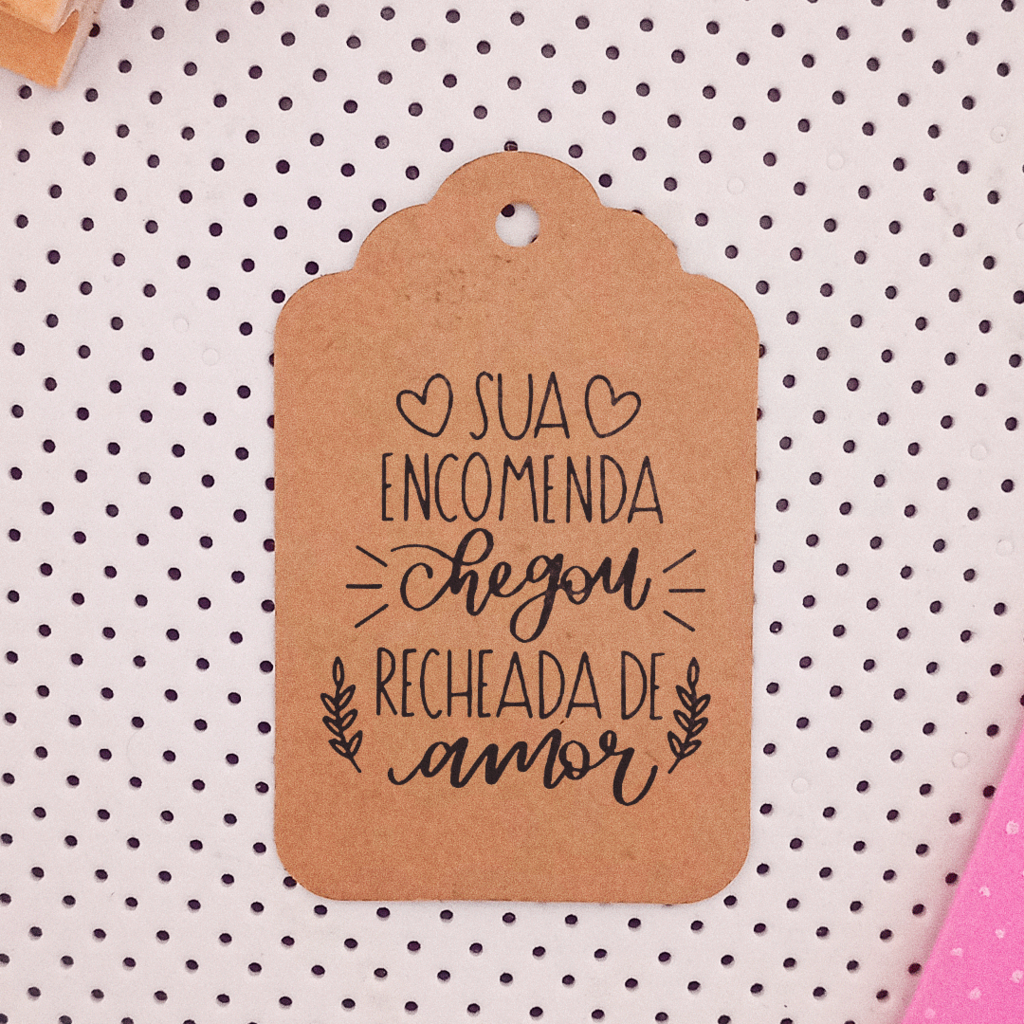 SUA
ENCOMENDA
chegou
RECHEADA DE
amor